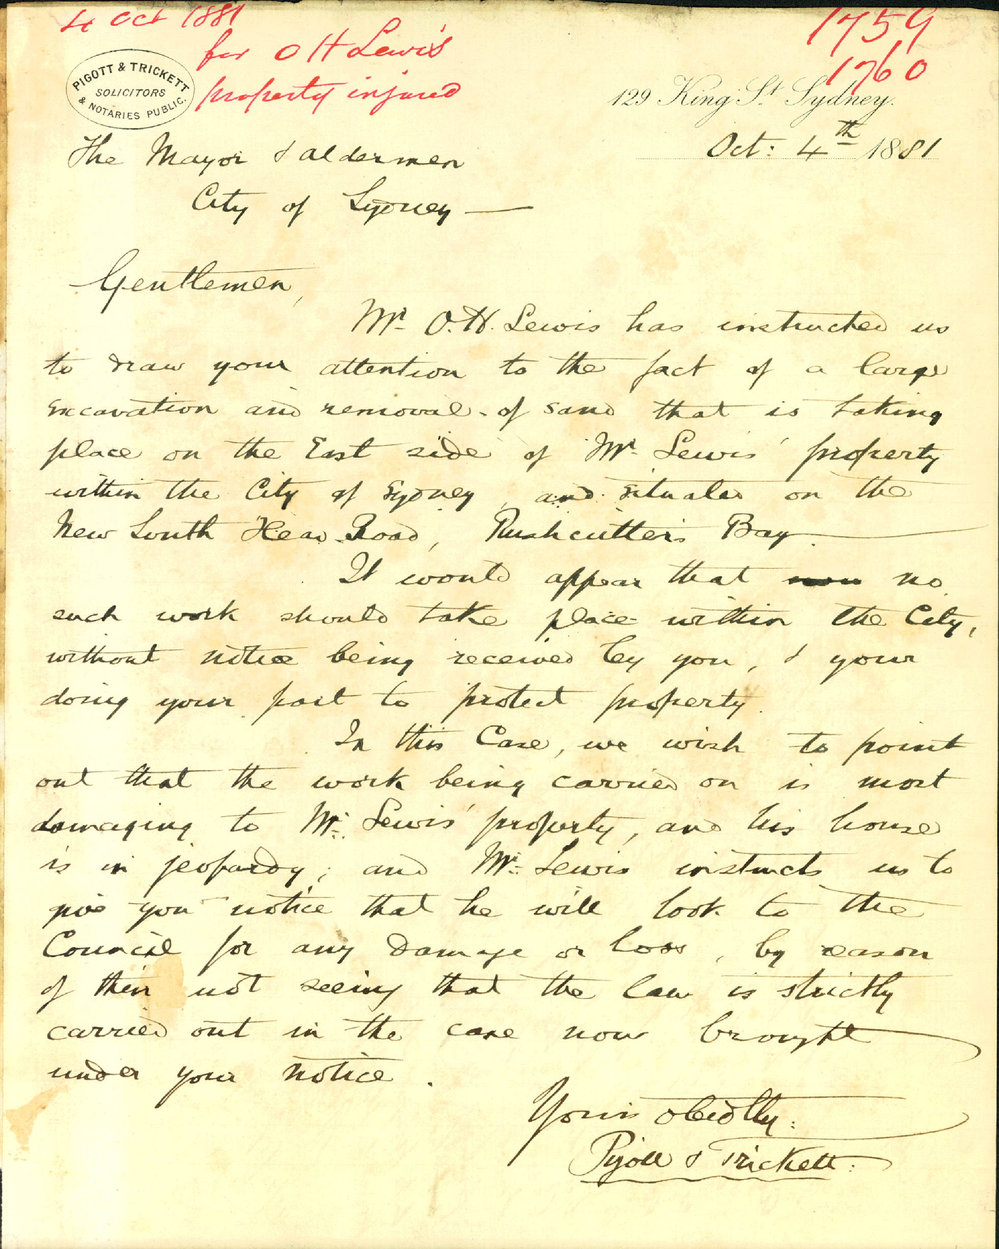 4 Oct 1881
for O H Lewis
property injured
1759
1760
PIGOTT & TRICKETT
SOLICITORS
& NOTARIES PUBLIC.
129 King St. Sydney.
Oct: 4th 1881
The Mayor & Aldermen
City of Sydney —
Gentlemen,
Mr. O. H. Lewis has instructed us
to draw your attention to the fact of a large
excavation and removal of sand that is taking
place on the East side of Mr. Lewis' property
within the City of Sydney, and situated on the
New South Head Road, Rushcutters Bay.
It would appear that no
such work should take place within the City,
without notice being received by you, & your
doing your part to protect property.
In this Case, we wish to point
out that the work being carried on is most
damaging to Mr. Lewis' property, and his house
is in jeopardy; and Mr. Lewis instructs us to
give you notice that he will look to the
Council for any damage or loss, by reason
of their not seeing that the law is strictly
carried out in the case now brought
under your notice.
Yours obedtly:
Pigott & Trickett.